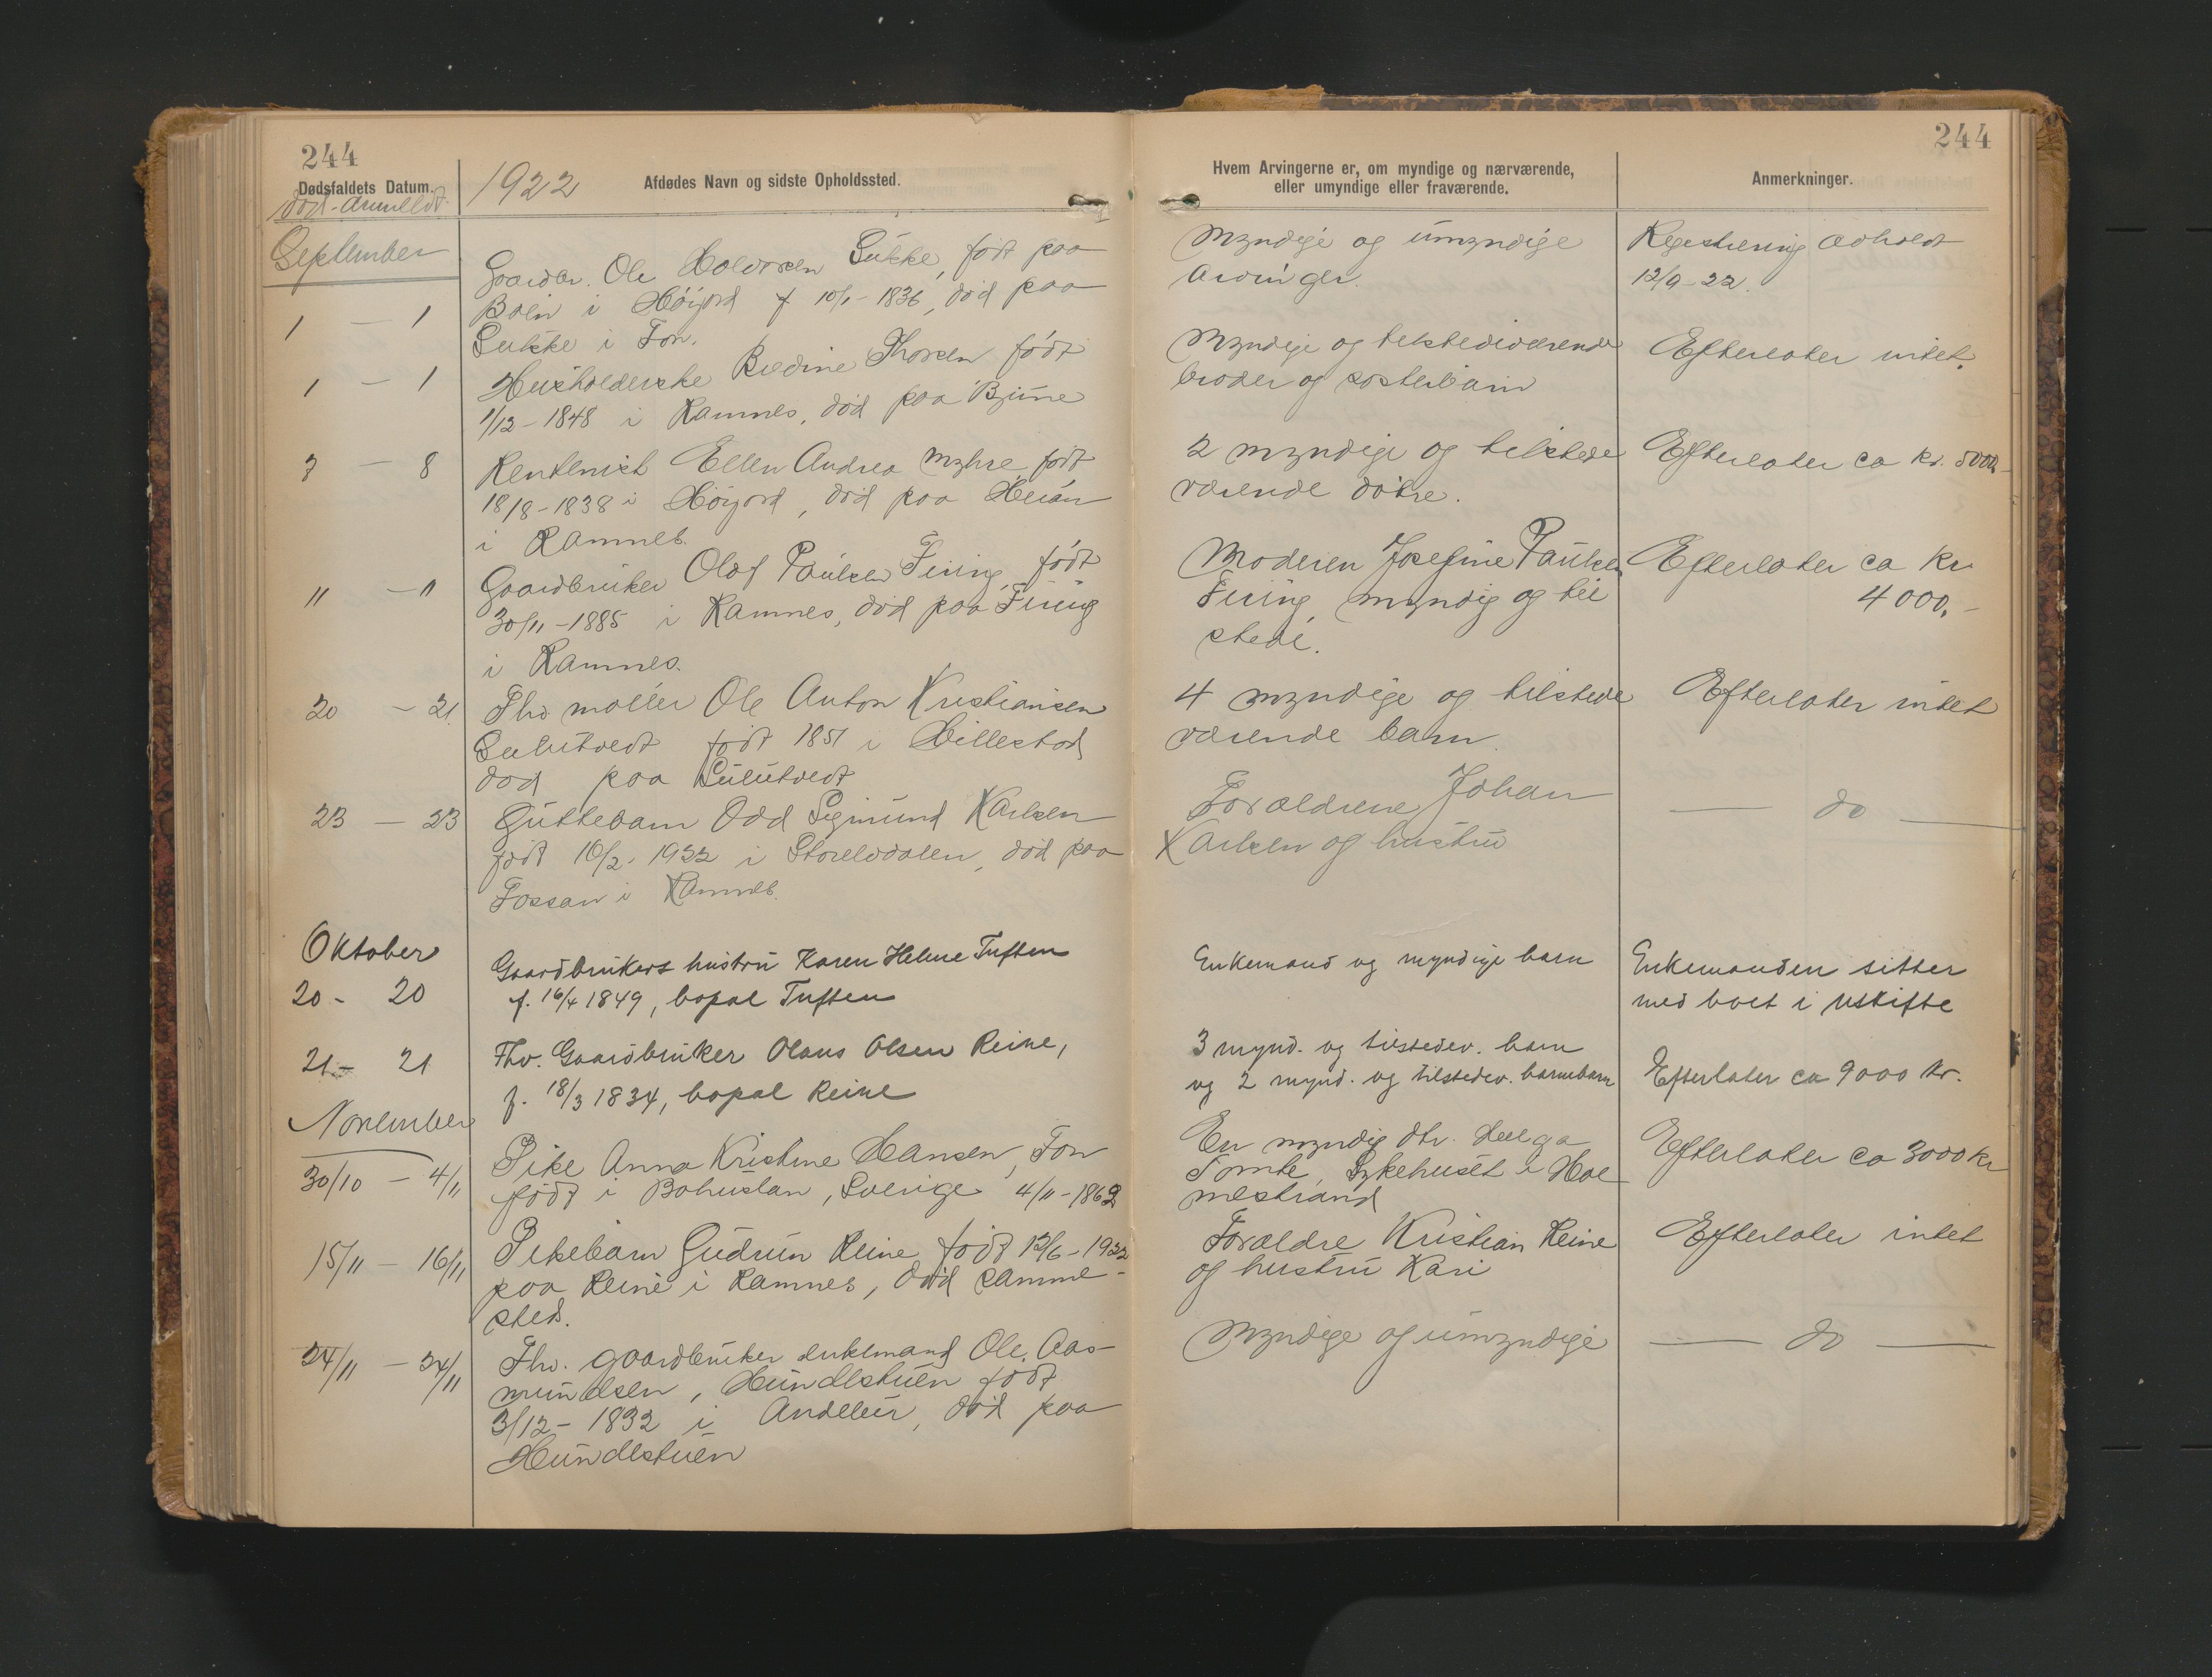 244
Dødsfaldets Datum.
død - anmeldt.
1922
Afdødes Navn og sidste Opholdssted.
September
1 — 1
Gaardbr. Ole Holdsen Sukke, født paa
Boen i Høijord f 10/1 - 1836, død paa
Sukke i Fon.
1 — 1
Husholderske Bredine Thorsen født
1/12 - 1848 i Ramnes, død paa Bjune
7 — 8
Rentenist Ellen Andrea Myhre født
18/8 - 1838 i Høijord, død paa Heian
i Ramnes.
11 — 11
Gaardbruker Olaf Paulsen Firing, født
30/11 - 1885 i Ramnes, død paa Firing
i Ramnes.
20 — 21
Fhv. møller Ole Anton Kristiansen
Sulutvedt født 1851 i Hillestad
død paa Sulutvedt
23 — 23
Guttebarn Odd Sigmund Karlsen
født 10/2 - 1922 i Storelvdalen, død paa
Fossan i Ramnes.
Oktober
20 - 20
Gaardbrukers hustru Karen Helene Tuften
f. 16/4 1849, bopæl Tuften
21 - 21
Fhv. Gaardbruker Olaus Olsen Reine,
f. 18/3 1834, bopæl Reine
November
30/10 — 4/11
Pike Anna Kristine Hansen, Fon
født i Bohuslan, Sverige 4/11 - 1862
15/11 — 16/11
Pikebarn Gudrun Reine født 12/6 - 1922
paa Reine i Ramnes, død samme-
sted.
24/11 — 24/11
Fhv. gaardbruker enkemand Ole Aas-
mundsen, Hundlstuen født
3/12 - 1832 i Andebu, død paa
Hundlstuen
244
Hvem Arvingerne er, om myndige og nærværende,
eller umyndige eller fraværende.
Anmerkninger.
Myndige og umyndige
arvinger.
Registrering avholdt
12/9 - 22.
Myndige og tilstedeværende
brødre og søsterbarn
Efterlater intet.
2 myndige og tilstede
værende døtre.
Efterlater ca kr. 5000,-
Moderen Josefine Paulsen
Firing myndig og til
stede.
Efterlater ca kr
4000,-
4 myndige og tilstede
værende barn.
Efterlater intet
Forældrene Johan
Karlsen og hustru
— do —
Enkemand og myndige barn
Enkemanden sitter
med boet i uskifte
3 mynd. og tilstedev. barn
og 2 mynd. og tilstedev. barnebarn
Efterlater ca 9000 kr.
En myndig dtr. Helga
Tomte, Sykehuset i Hol
mestrand
Efterlater ca 3000 kr
Forældre Kristian Reine
og hustru Kari
Efterlater intet
Myndige og umyndige
— do —